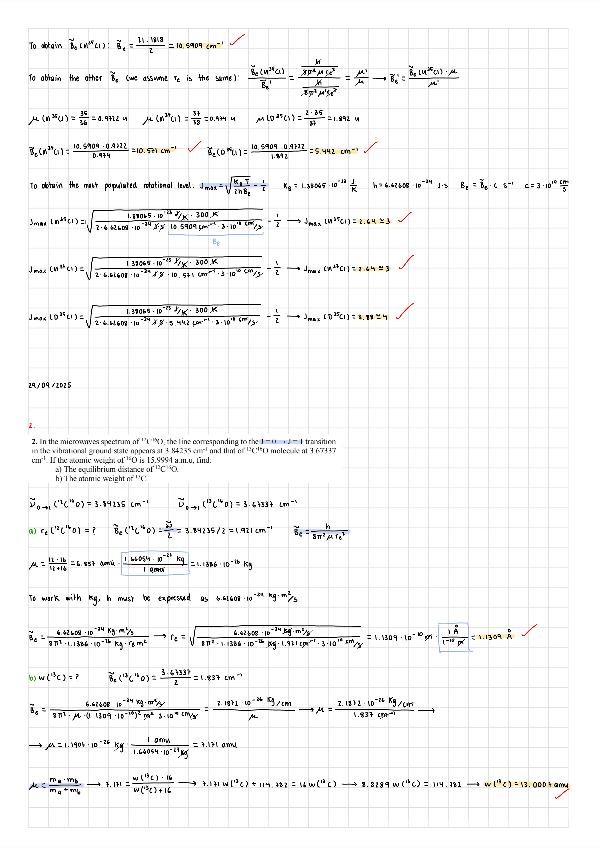 To obtain B̃e (H³⁵Cl): B̃e = 21.1818 / 2 = 10.5909 cm⁻¹ ✓
To obtain the other B̃e (we assume re is the same): B̃e(H³⁵Cl) / B̃e' = (h / 8π²μre²) / (h / 8π²μ're²) = μ' / μ → B̃e' = B̃e(H³⁵Cl)·μ / μ'
μ(H³⁵Cl) = 35/36 = 0.9722 u μ(H³⁷Cl) = 37/38 = 0.974 u μ(D³⁵Cl) = 2·35 / 37 = 1.892 u
B̃e(H³⁷Cl) = 10.5909 · 0.9722 / 0.974 = 10.571 cm⁻¹ ✓ B̃e(D³⁵Cl) = 10.5909 · 0.9722 / 1.892 = 5.442 cm⁻¹ ✓
To obtain the most populated rotational level: Jmax = √(KB T / 2hBe) - 1/2 KB = 1.38065 · 10⁻²³ J/K h = 6.62608 · 10⁻³⁴ J·s Be = B̃e · c s⁻¹ c = 3·10¹⁰ cm/s
Jmax (H³⁵Cl) = √(1.38065 · 10⁻²³ J/K · 300 K / 2 · 6.62608 · 10⁻³⁴ J·s · 10.5909 cm⁻¹ · 3·10¹⁰ cm/s) - 1/2 → Jmax (H³⁵Cl) = 2.64 ≃ 3 ✓
Be
Jmax (H³⁷Cl) = √(1.38065 · 10⁻²³ J/K · 300 K / 2 · 6.62608 · 10⁻³⁴ J·s · 10.571 cm⁻¹ · 3·10¹⁰ cm/s) - 1/2 → Jmax (H³⁷Cl) = 2.64 ≃ 3 ✓
Jmax (D³⁵Cl) = √(1.38065 · 10⁻²³ J/K · 300 K / 2 · 6.62608 · 10⁻³⁴ J·s · 5.442 cm⁻¹ · 3·10¹⁰ cm/s) - 1/2 → Jmax (D³⁵Cl) = 3.88 ≃ 4 ✓
29/09/2025
2.
2. In the microwaves spectrum of ¹²C¹⁶O, the line corresponding to the J = 0 → J = 1 transition
in the vibrational ground state appears at 3.84235 cm⁻¹ and that of ¹³C¹⁶O molecule at 3.67337
cm⁻¹. If the atomic weight of ¹⁶O is 15.9994 a.m.u, find:
a) The equilibrium distance of ¹²C¹⁶O.
b) The atomic weight of ¹³C
ν̃₀→₁ (¹²C¹⁶O) = 3.84235 cm⁻¹ ν̃₀→₁ (¹³C¹⁶O) = 3.67337 cm⁻¹
a) re (¹²C¹⁶O) = ? B̃e (¹²C¹⁶O) = ν̃/2 = 3.84235/2 = 1.921 cm⁻¹ B̃e = h / 8π²μre²
μ = 12·16 / 12+16 = 6.857 amu · 1.66054 · 10⁻²⁷ Kg / 1 amu = 1.1386 · 10⁻²⁶ Kg
To work with Kg, h must be expressed as 6.62608 · 10⁻³⁴ Kg·m²/s
B̃e = 6.62608 · 10⁻³⁴ Kg·m²/s / 8π² · 1.1386 · 10⁻²⁶ Kg · re² m² → re = √(6.62608 · 10⁻³⁴ Kg·m²/s / 8π² · 1.1386 · 10⁻²⁶ Kg · 1.921 cm⁻¹ · 3·10¹⁰ cm/s) = 1.1309 · 10⁻¹⁰ m · 1 Å / 1⁻¹⁰ m = 1.1309 Å ✓
b) w(¹³C) = ? B̃e (¹³C¹⁶O) = 3.67337 / 2 = 1.837 cm⁻¹
B̃e = 6.62608 · 10⁻³⁴ Kg·m²/s / 8π² · μ · (1.1309 · 10⁻¹⁰)² m² · 3·10¹⁰ cm/s = 2.1872 · 10⁻²⁶ Kg/cm / μ → μ = 2.1872 · 10⁻²⁶ Kg/cm / 1.837 cm⁻¹ →
→ μ = 1.1906 · 10⁻²⁶ Kg · 1 amu / 1.66054 · 10⁻²⁷ Kg = 7.171 amu
μ = ma · mb / ma + mb → 7.171 = w(¹³C) · 16 / w(¹³C) + 16 → 7.171 w(¹³C) + 114.732 = 16 w(¹³C) → 8.8289 w(¹³C) = 114.732 → w(¹³C) = 13.0007 amu ✓